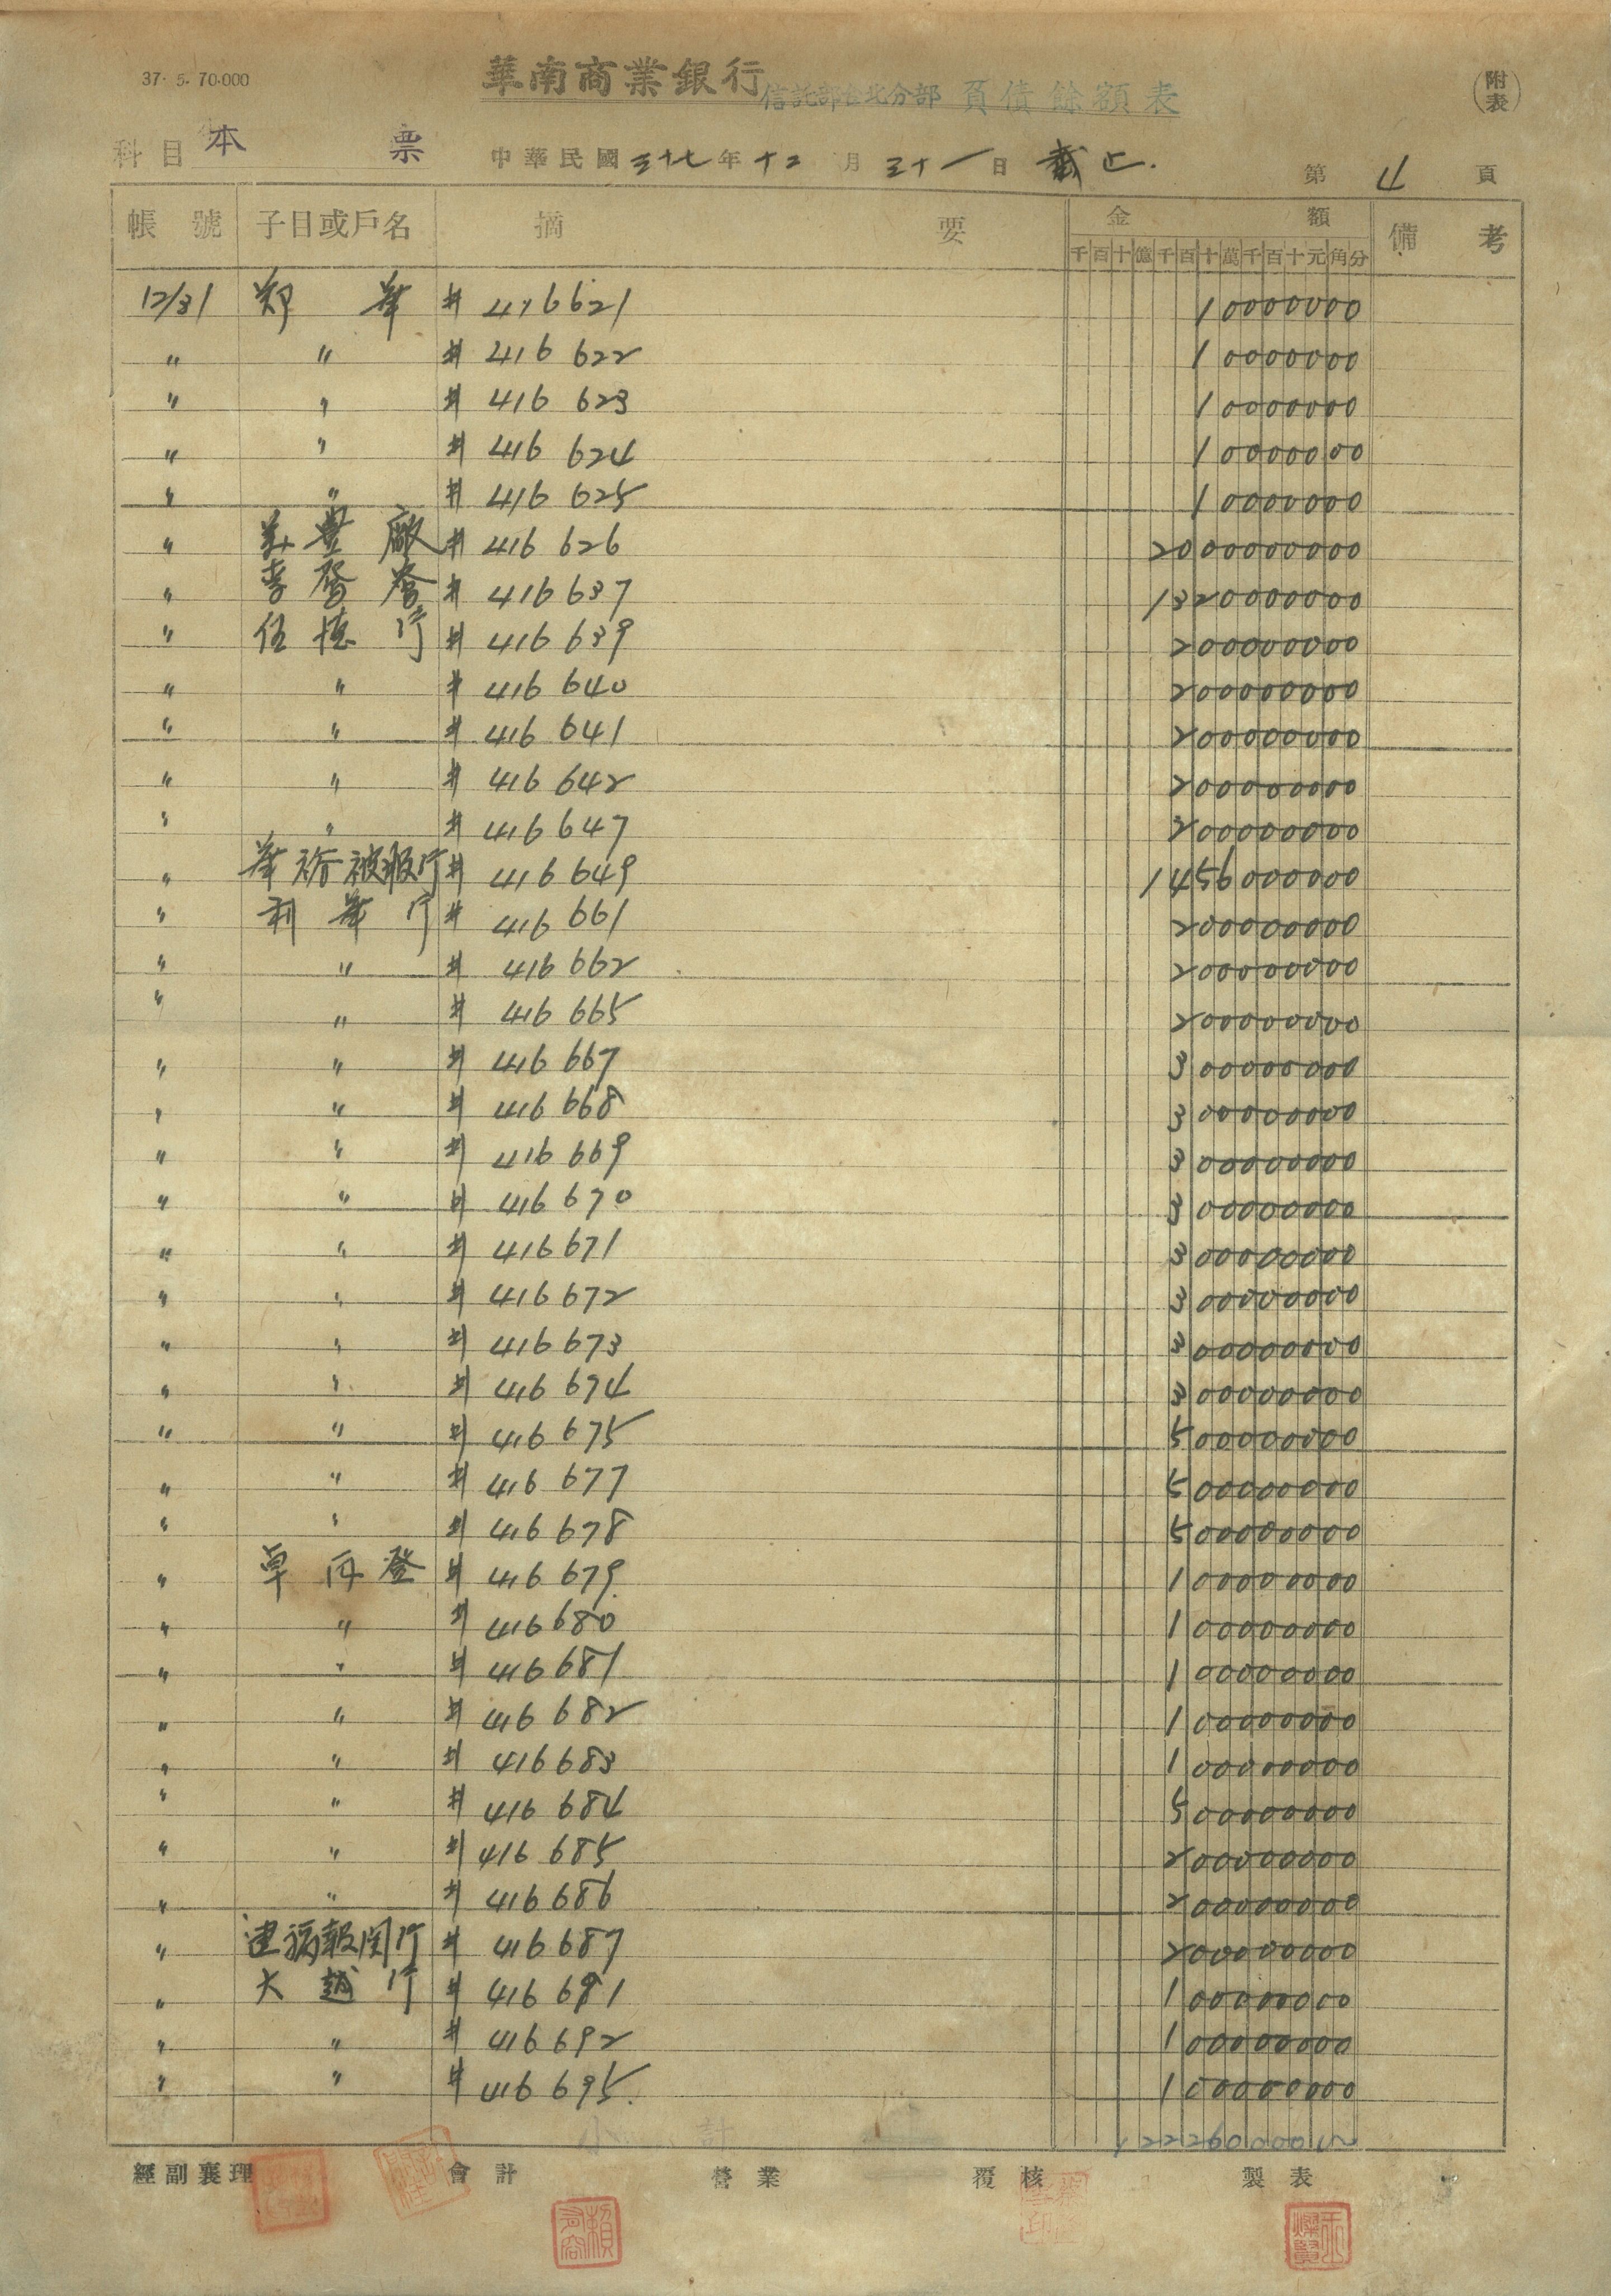 37. 5. 70.000
華南商業銀行 信託部台北分部 負債餘額表 (附表)
科目 本票 中華民國三十七年十二月三十一日 截止. 第 4 頁
帳號 子目或戶名 摘要 金額 備考
千百十億千百十萬千百十元角分
12/31 郑 華 # 416621 10000000
〃 〃 # 416622 10000000
〃 〃 # 416623 10000000
〃 〃 # 416624 10000000
〃 〃 # 416625 10000000
〃 美豐廠 # 416626 2000000000
〃 李 # 416637 1320000000
〃 伍德行 # 416639 200000000
〃 〃 # 416640 200000000
〃 〃 # 416641 200000000
〃 〃 # 416642 200000000
〃 〃 # 416647 200000000
〃 華裕被服行 # 416649 1456000000
〃 利華行 # 416661 200000000
〃 〃 # 416662 200000000
〃 〃 # 416665 200000000
〃 〃 # 416667 300000000
〃 〃 # 416668 300000000
〃 〃 # 416669 300000000
〃 〃 # 416670 300000000
〃 〃 # 416671 300000000
〃 〃 # 416672 300000000
〃 〃 # 416673 300000000
〃 〃 # 416674 300000000
〃 〃 # 416675 500000000
〃 〃 # 416677 500000000
〃 〃 # 416678 500000000
〃 卓丙登 # 416679 100000000
〃 〃 # 416680 100000000
〃 〃 # 416681 100000000
〃 〃 # 416682 100000000
〃 〃 # 416683 100000000
〃 〃 # 416684 500000000
〃 〃 # 416685 200000000
〃 〃 # 416686 200000000
〃 建福報関行 # 416687 200000000
〃 大越行 # 416691 100000000
〃 〃 # 416692 100000000
〃 〃 # 416695 100000000
小計 12226000000
經副襄理 會計 營業 覆核 製表